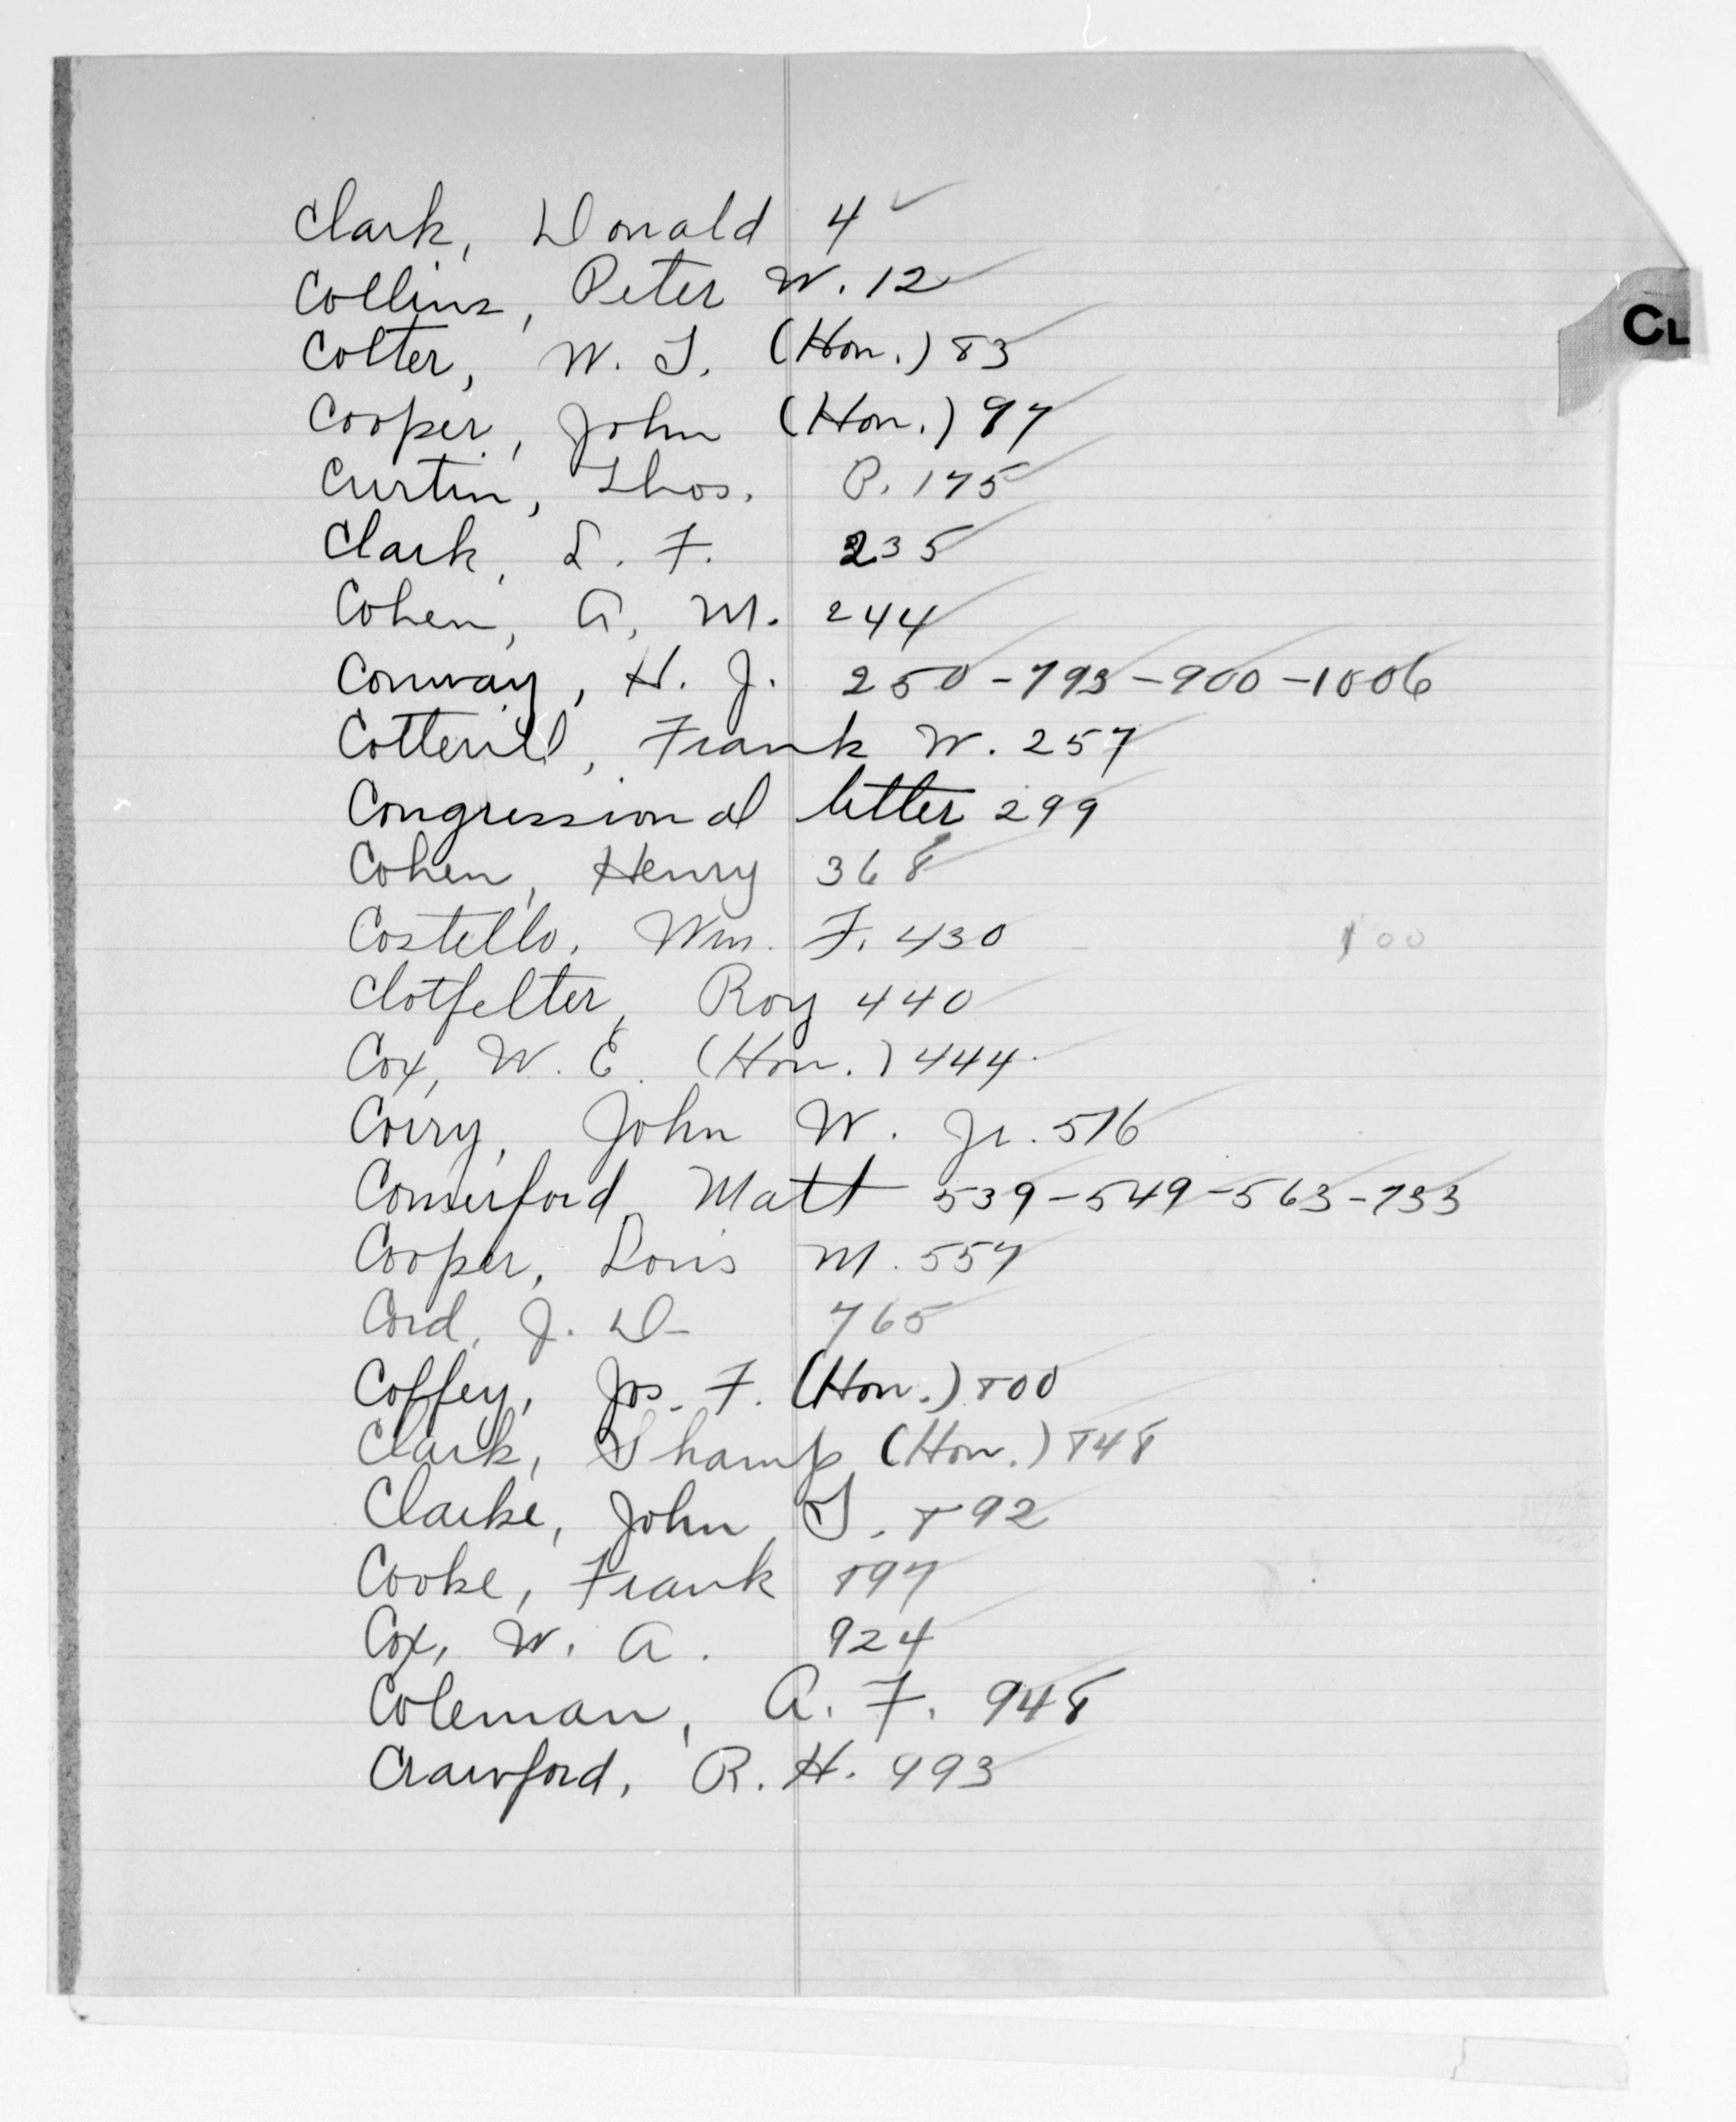 Clark, Donald 4 ✓
Collins, Peter W. 12
CL
Colter, W. S. (Hon.) 83
Cooper, John (Hon.) 97
Curtin, Thos. P. 175
Clark, S. F. 235
Cohen, A. M. 244
Conway, H. J. 250-793-900-1006
Cotterill, Frank W. 257
Congressional letter 299
Cohen, Henry 368
Costello, Wm. F. 430
Clotfelter, Roy 440
Cox, W. E. (Hon.) 444
Corry, John W. Jr. 516
Comerford Matt 539-549-563-733
Cooper, Louis M. 557
Cord, J. D- 765
Coffey, Jos. F. (Hon.) 800
Clark, Champ (Hon.) 848
Clarke, John S. 892
Cooke, Frank 897
Cox, W. A. 924
Coleman, A. F. 948
Crawford, R. H. 993